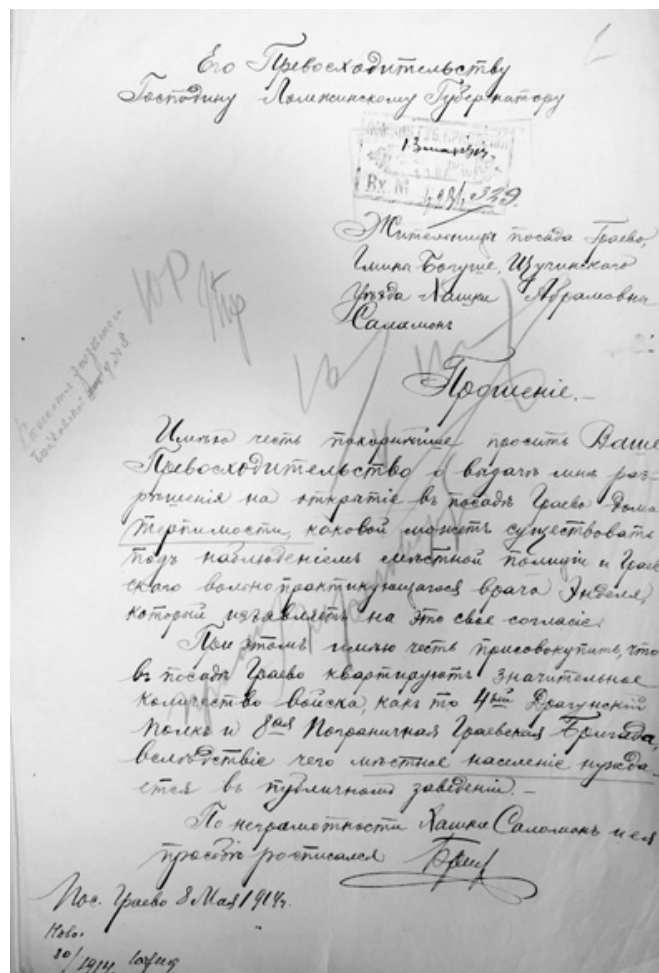 Его Превосходительству
Господину Ломжинскому Губернатору
13 мая 1914
Вх. №
329.
Жительницы посада Граево,
Гмины Богуше, Щучинскаго
уѣзда Хашки Абрамовны
Саломонъ
Прошеніе.-
Имѣю честь покорнѣйше просить Ваше
Превосходительство о выдачѣ мнѣ раз-
рѣшенія на открытіе въ посадѣ Граево Дома
терпимости, каковой можетъ существовать
подъ наблюденіемъ мѣстной полиціи и Граев
скаго вольнопрактикующагося врача Энделя,
который изъявляетъ на это свое согласіе.
При этомъ имѣю честь присовокупить, что
въ посадѣ Граево квартируютъ значительное
количество войска, какъ то 4ый Драгунскій
полкъ и 8ая Пограничная Граевская Бригада,
вслѣдствіе чего мѣстное населеніе нужда-
ется въ публичномъ заведеніи.-
По неграмотности Хашки Саломонъ и ея
просьбѣ росписался
Пос. Граево 8 Мая 1914г.